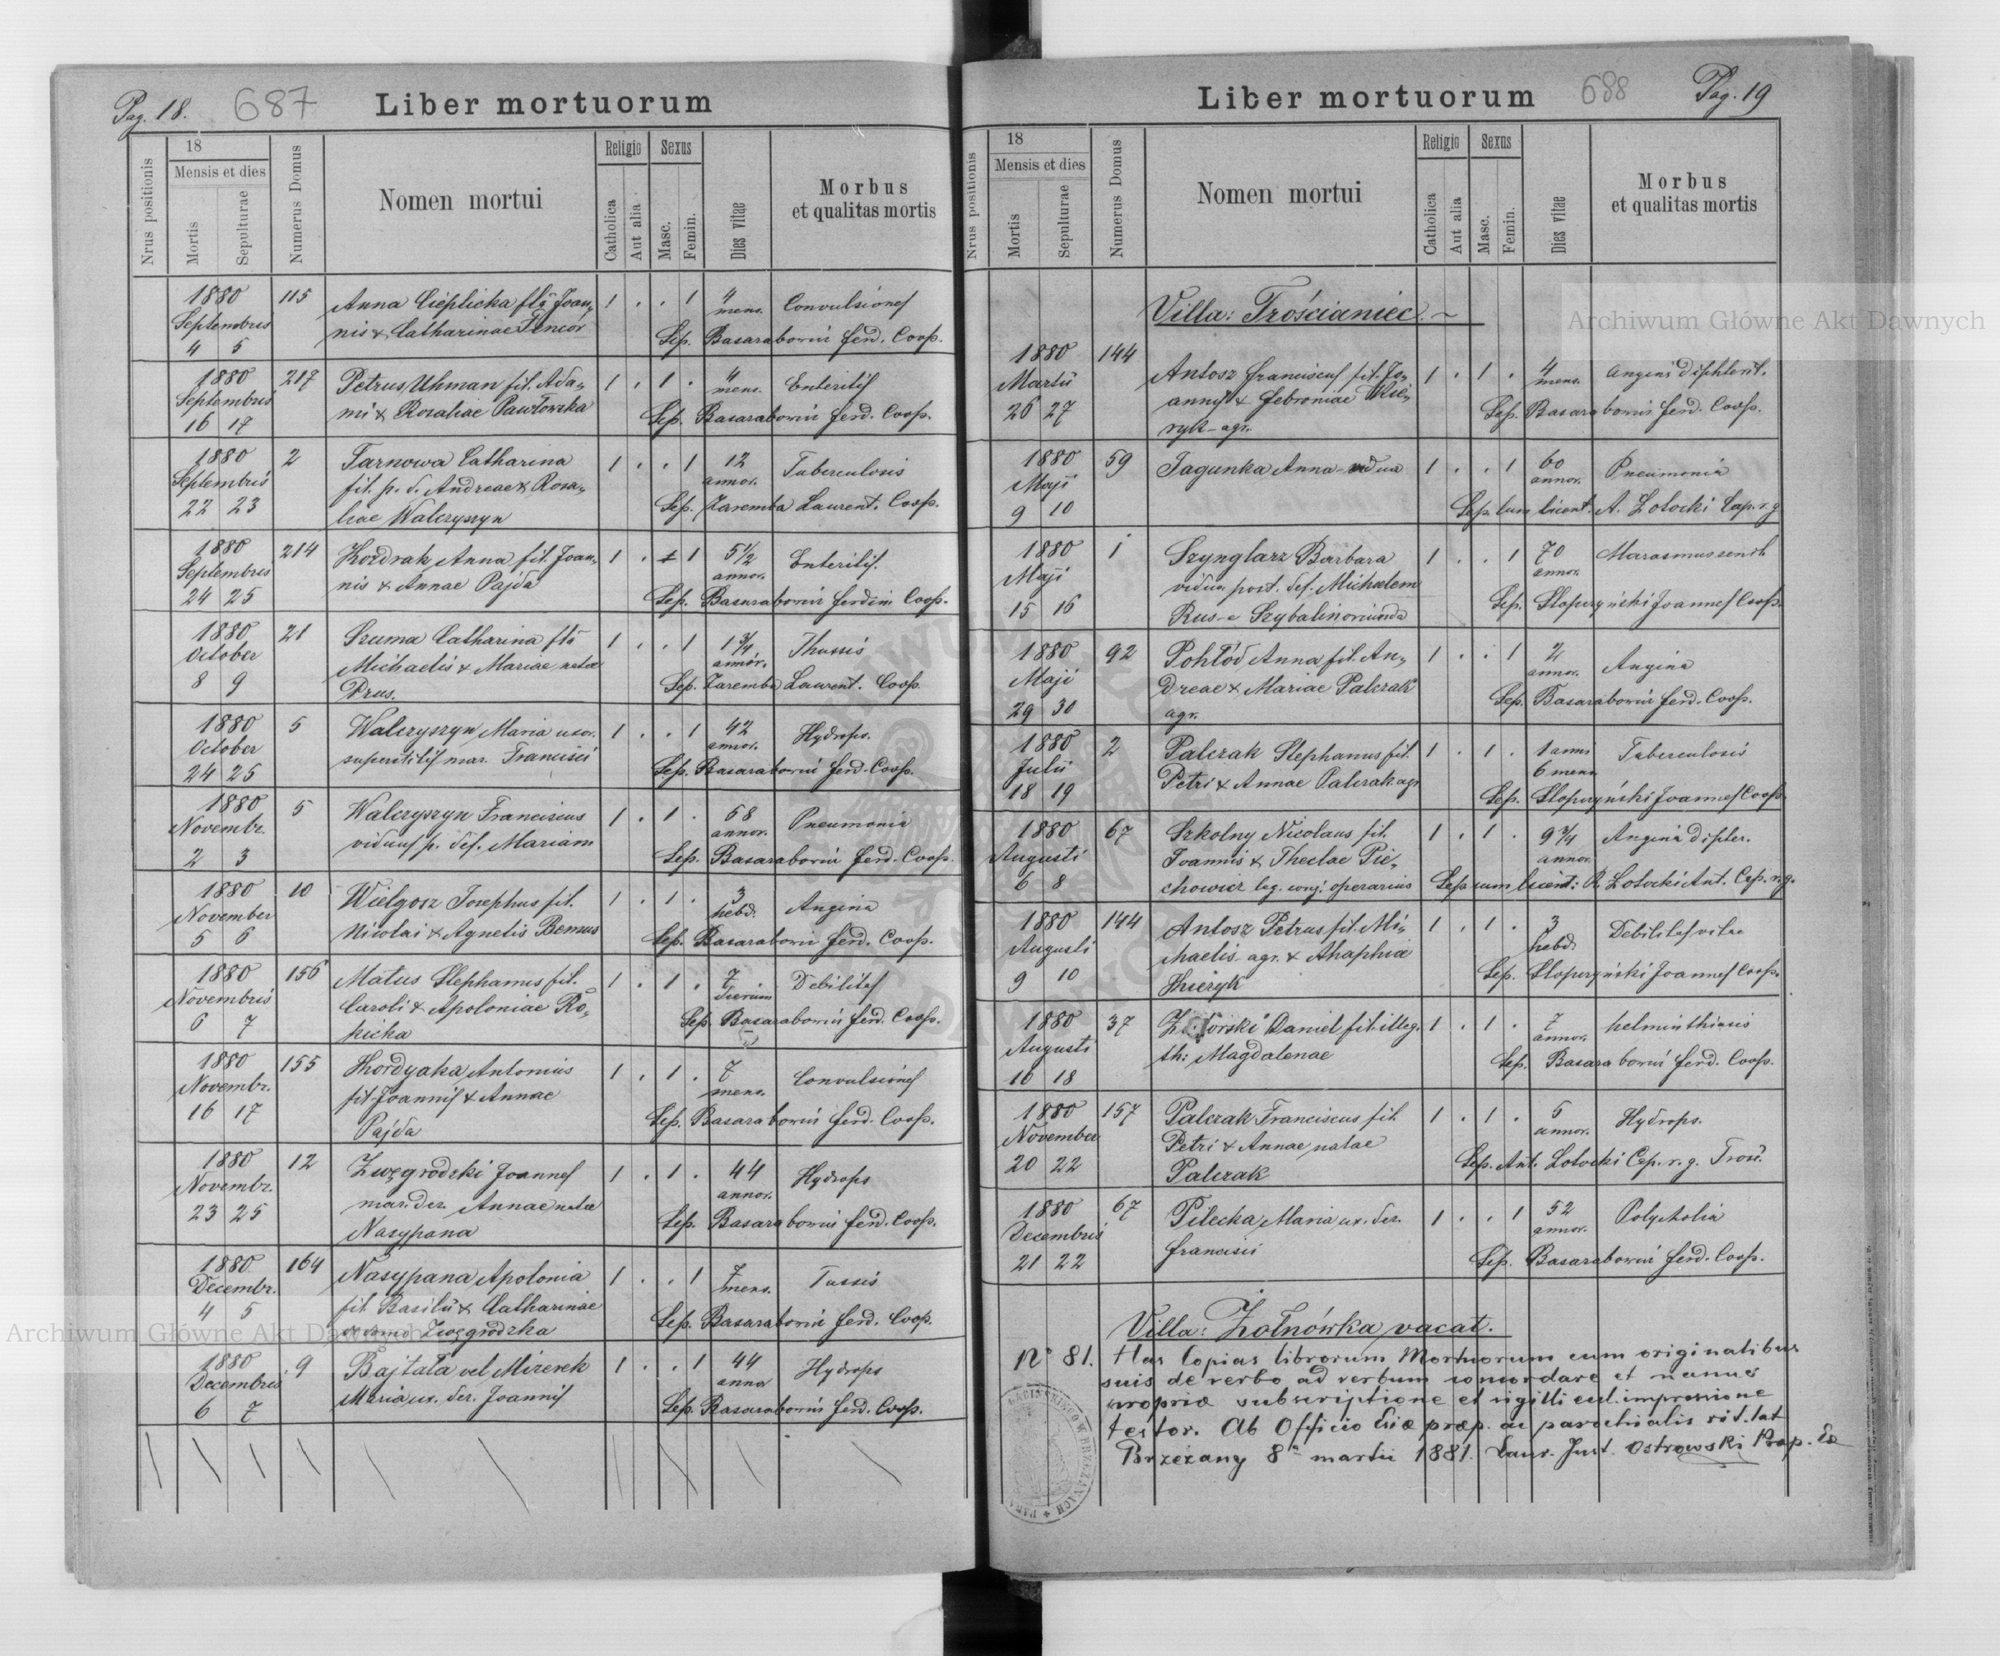 Pag. 18.
687
Liber mortuorum
Nrus positionis
18
Mensis et dies
Mortis
Sepulturae
Numerus Domus
Nomen mortui
Religio
Catholica
Aut alia
Sexus
Masc.
Femin.
Dies vitae
Morbus
et qualitas mortis
1880 115 Anna Cieplicka Joan- 1 . . 1 4 Convulsiones
Septembris nis & Catharinae mens.
4 5 Sep. Basarabowicz Ferd. Coop.
1880 217 Petrus Uhman fil. Ada- 1 . 1 . 4 Enteritis
Septembris mi & Rosaliae Pawłowska mens.
16 17 Sep. Basarabowicz Ferd. Coop.
1880 2 Tarnowa Catharina 1 . . 1 12 Tuberculosis
Septembris fil. p. d. Andreae & Rosa- annor.
22 23 liae Walczyszyn Sep. Zaremba Laurent. Coop.
1880 214 Anna fil. Joan- 1 . 1 5 1/2 Enteritis.
Septembris nis & Annae Pajda annor.
24 25 Sep. Basarabowicz Ferdin Coop.
1880 21 Szuma Catharina 1 . . 1 1 3/4 Thussis
October Michaelis & Mariae natae annor.
8 9 Prus. Sep. Zaremba Laurent. Coop.
1880 5 Walczyszyn Maria uxor. 1 . . 1 42 Hydrops.
October superstitis mar. Francisci annor.
24 25 Sep. Basarabowicz Ferd. Coop.
1880 5 Walczyszyn Franciscus 1 . 1 . 68 Pneumonia
Novembr. viduus p. def. Mariam annor.
2 3 Sep. Basarabowicz Ferd. Coop.
1880 10 Wielgosz Josephus fil. 1 . 1 . 3 Angina
November Nicolai & Agnetis Bemus hebd.
5 6 Sep. Basarabowicz Ferd. Coop.
1880 156 Matus Stephanus fil. 1 . 1 . 7 Debilitas
Novembris Caroli & Apoloniae Ro- dierum
6 7 kicka Sep. Basarabowicz Ferd. Coop.
1880 155 Hordyaka Antonius 1 . 1 . 7 Convulsiones
Novembr. fil. Joannis & Annae mens.
16 17 Pajda Sep. Basarabowicz Ferd. Coop.
1880 12 Zwęgrodzki Joannes 1 . 1 . 44 Hydrops
Novembr. mar. der. Annae natae annor.
23 25 Nasypana Sep. Basarabowicz Ferd. Coop.
1880 164 Nasypana Apolonia 1 . . 1 7 Tussis
Decembr. fil. Basilii & Catharinae mens.
4 5 Zwęgrodzka Sep. Basarabowicz Ferd. Coop.
1880 9 Bajtała vel Mizerek 1 . . 1 44 Hydrops
Decembris Maria ux. der. Joannis annor
6 7 Sep. Basarabowicz Ferd. Coop.
688
Pag. 19
Liber mortuorum
Nrus positionis
18
Mensis et dies
Mortis
Sepulturae
Numerus Domus
Nomen mortui
Religio
Catholica
Aut alia
Sexus
Masc.
Femin.
Dies vitae
Morbus
et qualitas mortis
Villa: Trościaniec.
1880 144 Antosz Franciscus fil. Jo- 1 . 1 . 4 Angina diphterit.
Martii annis & Febroniae mens.
26 27 agr. Sep. Basarabowicz Ferd. Coop.
1880 59 Jagunka Anna vidua 1 . . 1 60 Pneumonia
Maji annor.
9 10 Sep. cum licent. A. Łotocki Cap. r. g
1880 1 Szynglarz Barbara 1 . . 1 70 Marasmus senil
Maji vidua post. def. Michaelem annor.
15 16 Rus e Szybalin oriunda Sep. Słopczyński Joannes Coop.
1880 92 Pohłód Anna fil. An- 1 . . 1 2 Angina
Maji dreae & Mariae Palczak annor.
29 30 agr. Sep. Basarabowicz Ferd. Coop.
1880 2 Palczak Stephanus fil. 1 . 1 . 1 anni Tuberculosis
Julii Petri & Annae Palczak agr 6 mens
18 19 Sep. Słopczyński Joannes Coop.
1880 67 Szkolny Nicolaus fil. 1 . 1 . 9 3/4 Angina dipter.
Augusti Joannis & Theclae Pie- annor.
6 8 chowicz leg. conj. operarius Sep. cum licent: R. Łotocki Ant. Cap. r. g.
1880 144 Antosz Petrus fil. Mi- 1 . 1 . 3 Debilitas vitae
Augusti chaelis agr. & Ahaphia hebd.
9 10 Sep. Słopczyński Joannes Coop.
1880 37 Daniel fil. illeg. 1 . 1 . 7 helminthiasis
Augusti th: Magdalenae annor.
16 18 Sep. Basarabowicz Ferd. Coop.
1880 157 Palczak Franciscus fil. 1 . 1 . 5 Hydrops.
November Petri & Annae natae annor.
20 22 Palczak Sep. Ant. Łotocki Cap. r. g. Troś.
1880 67 Pilecka Maria ux. der. 1 . . 1 52 Polycholia
Decembris Francisci annor.
21 22 Sep. Basarabowicz Ferd. Coop.
Villa: Żołnówka vacat.
No 81. Has Copias librorum Mortuorum cum originalibus
suis de verbo ad verbum concordare et manus
propriae subscriptione et sigilli eccl. impressione
testor. Ab Officio Ecclae praep. ac parochialis rit. lat
Brzeżany 8a martii 1881. Laur. Just. Ostrowski Praep.
Archiwum Główne Akt Dawnych
Archiwum Główne Akt Dawnych